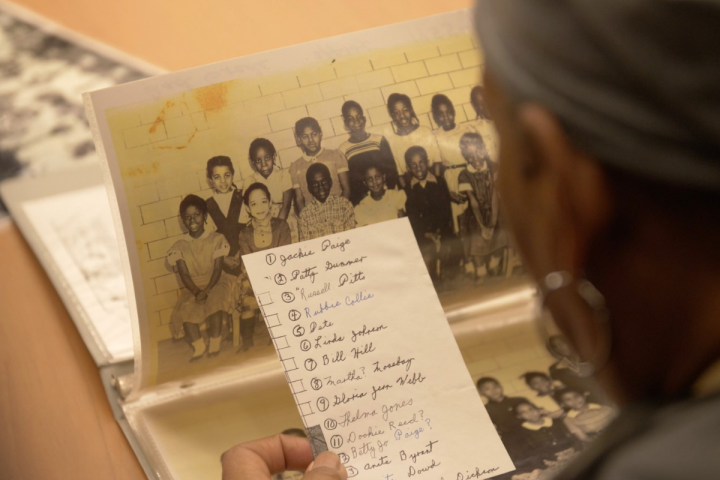 ① Jackie Paige
② Patty Gummer
③ "Russell Pitts
④ Robbie Collie
⑤ Pete
⑥ Linda Johnson
⑦ Bill Hill
⑧ Martha?
⑨ Gloria Jean Webb
⑩ Thelma Jones
⑪ Dookie Reed?
Betty Jo Paige?
3 Anita Bryant
Dowd
Dickson